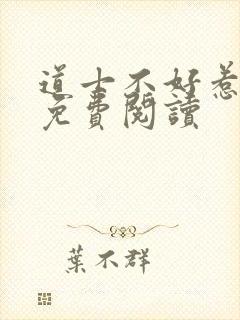 道士不好惹
免費閱讀
葉不群